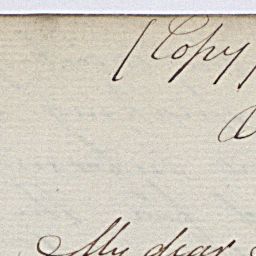 (Copy)
My dear